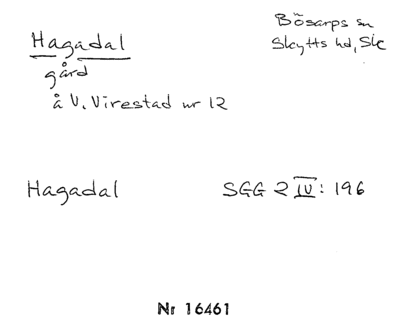 Hagadal
Bösarps sn
Skytts hd, Sk
gård
å V. Virestad nr 12
Hagadal SGG 2 IV: 196
Nr 16461